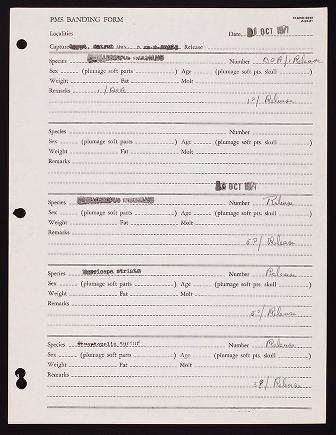 PMS BANDING FORM
Localities Date, OCT 1971
Capture Release
Species Number DOR/1 Release
Sex (plumage soft parts ) Age (plumage soft pts. skull )
Weight Fat Molt
Remarks 1/DOR
1?/ Release
Species Number
Sex (plumage soft parts ) Age (plumage soft pts. skull )
Weight Fat Molt
Remarks
OCT 1971
Species Number Release
Sex (plumage soft parts ) Age (plumage soft pts. skull )
Weight Fat Molt
Remarks
5?/ Release
Species Muscicapa striata Number Release
Sex (plumage soft parts ) Age (plumage soft pts. skull )
Weight Fat Molt
Remarks
5?/ Release
Species Streptopelia turtur Number Release
Sex (plumage soft parts ) Age (plumage soft pts. skull )
Weight Fat Molt
Remarks
3?/ Release